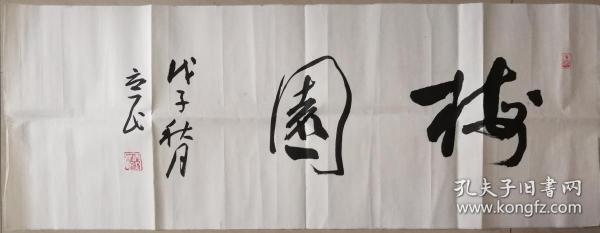 梅園
戊子秋月
立民
孔夫子旧书网
www.kongfz.com